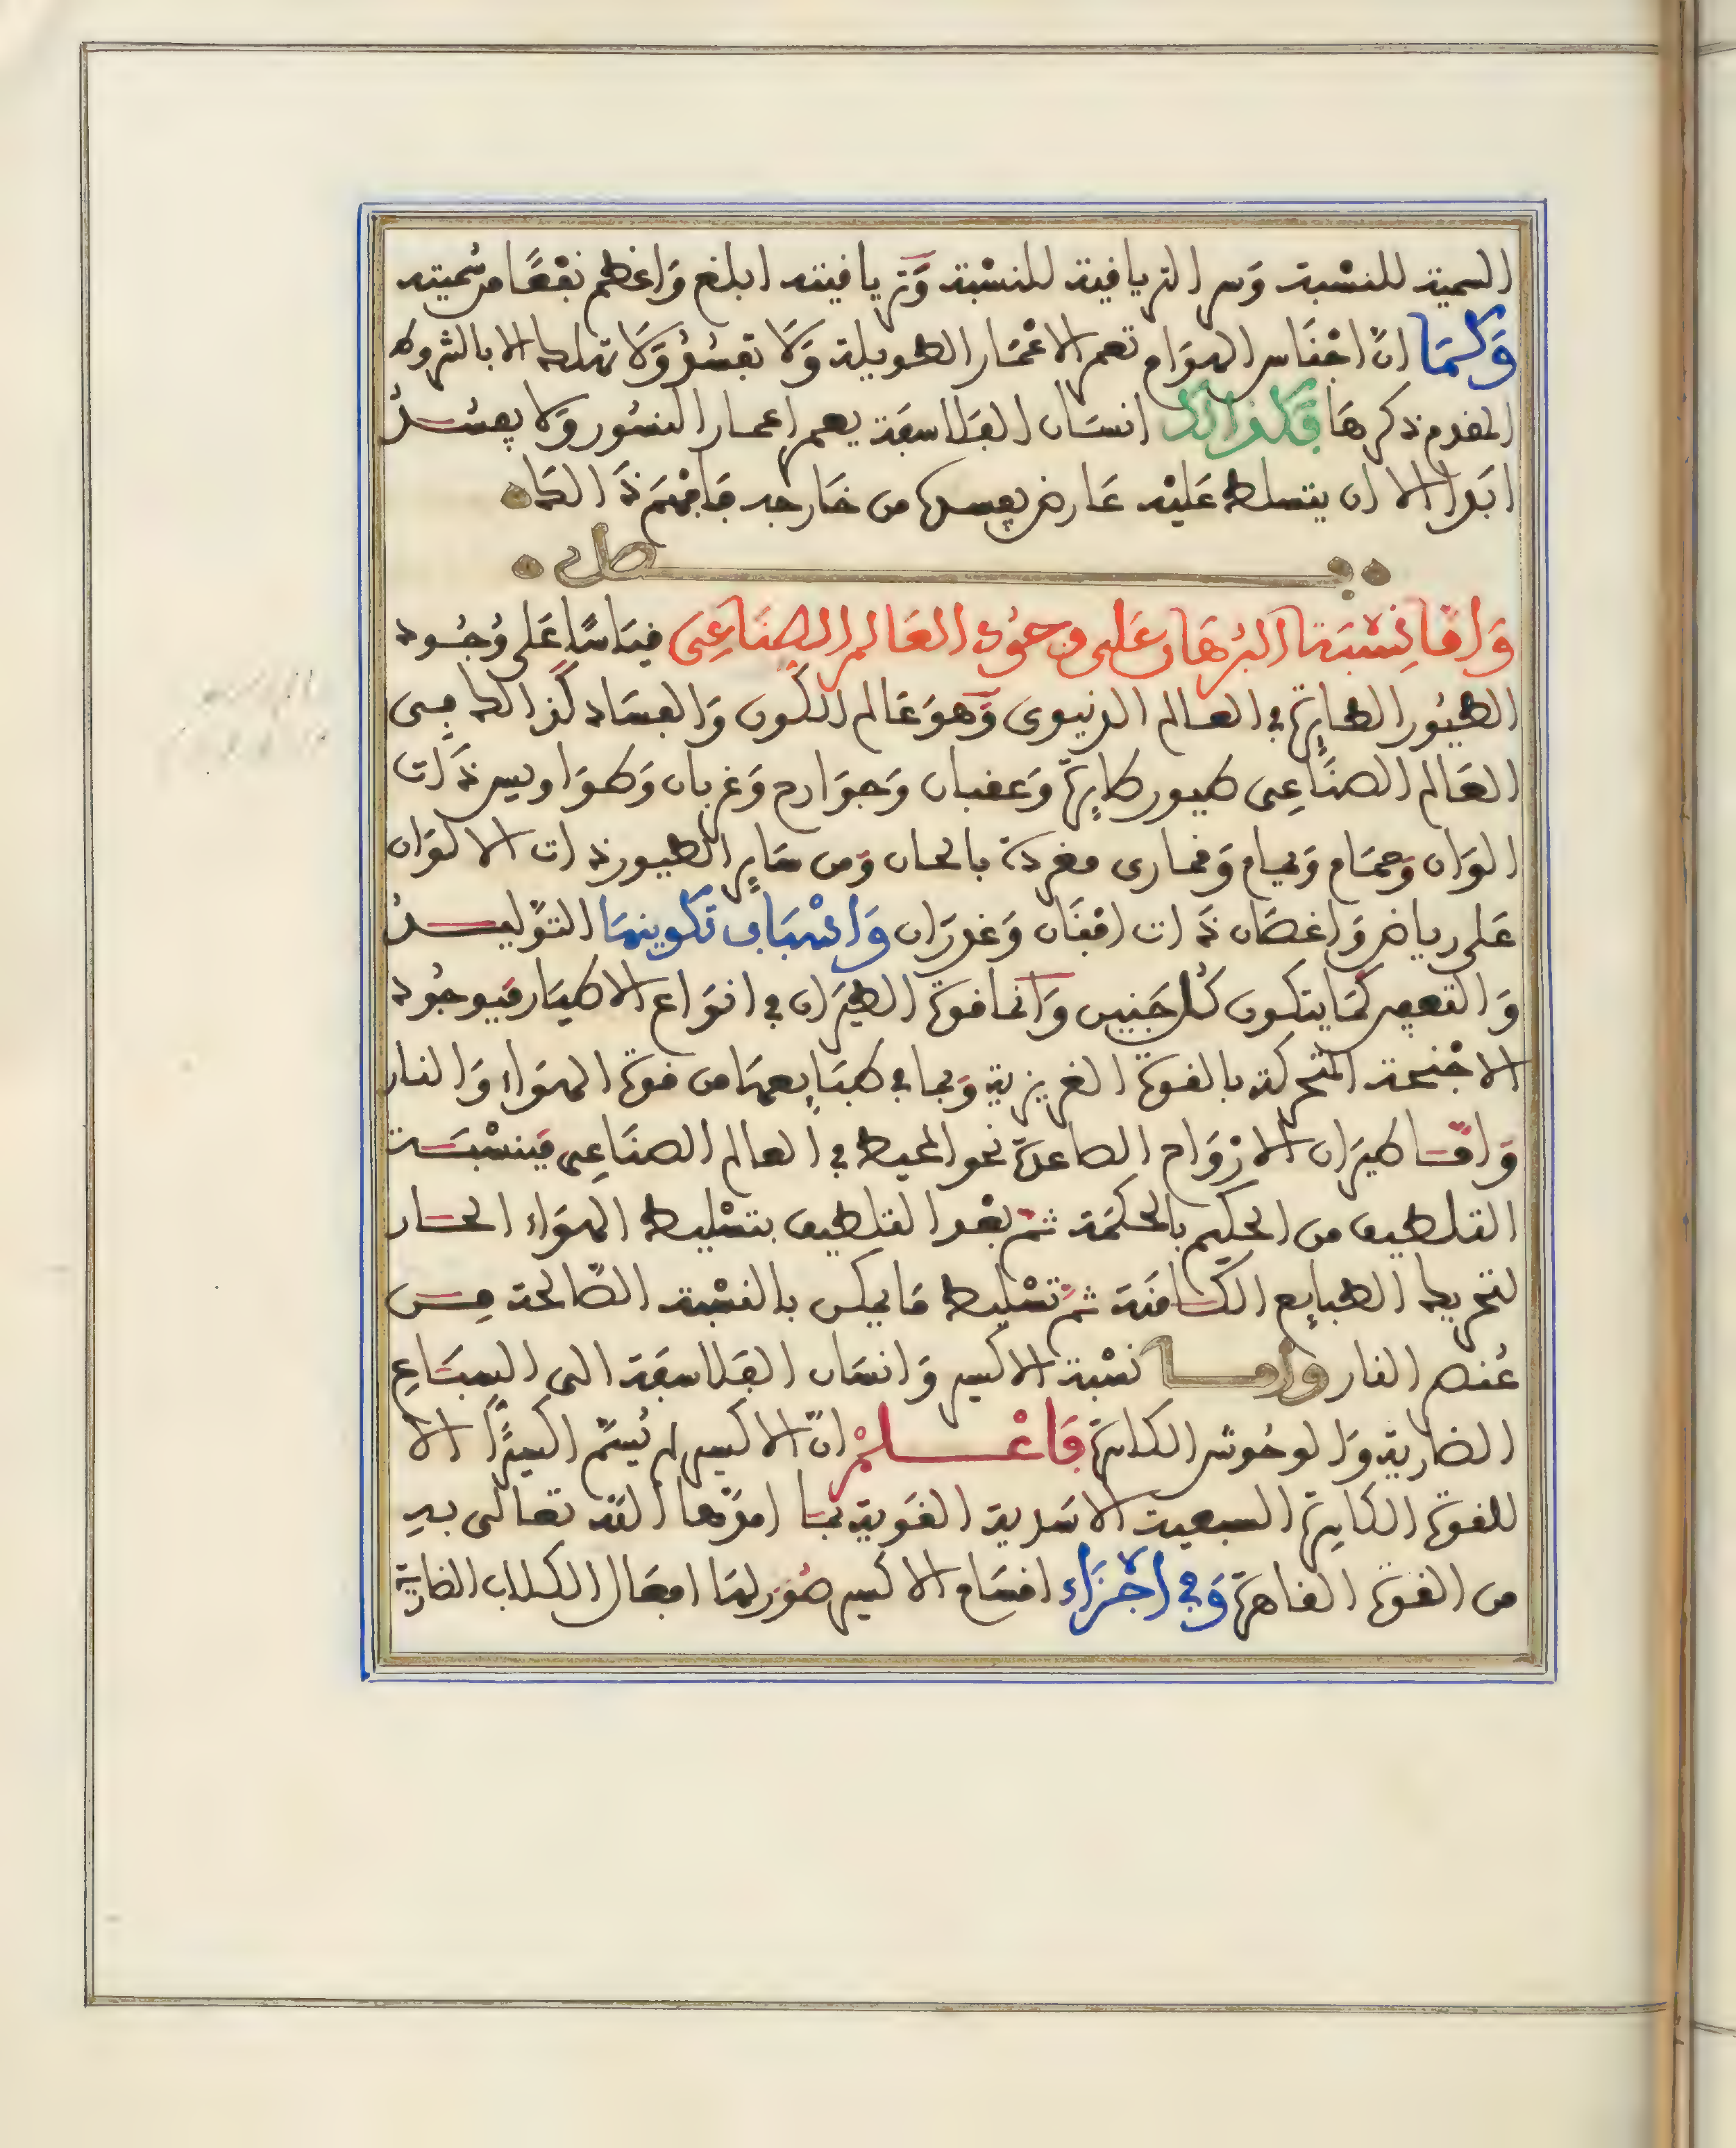 السمية للنسبة وسر الترياقية للنسبة وترياقيته ابلغ واعظم نفعا من سميته
وكما ان اجناس الهوام تعمر الاعمار الطويلة ولا تفسد ولا تهلك الا بالشروط
المقدم ذكرها فكذلك انسان الفلاسفة يعمر اعمار النسور ولا يفسد
ابدا الا ان يتسلط عليه عارض يفسده من خارجه فافهم ذلك
فصل
واما نسبة البرهان على وجود العالم الصناعي قياسا على وجود
الطيور الطايرة في العالم الدنيوي وهو عالم الكون والفساد كذلك في
العالم الصناعي طيور طايرة وعقبان وجوارح وغربان وطواويس ذات
الوان وحمام ويمام وقماري مغردة بالحان ومن ساير الطيور ذات الالوان
على رياض واغصان ذات افنان وغدران واسباب تكوينها التوليد
والتعفين كما يتكون كل جنيس وانما قوة الطيران في انواع الاطيار فبوجود
الاجنحة المتحركة بالقوة الغريزية وبما في طبايعها من قوة الهواء والنار
واما طيران الارواح الصاعدة نحو المحيط في العالم الصناعي فبنسبة
التلطيف من الحكيم بالحكمة ثم بعد التلطيف بتسليط الهواء الحار
لتحريك الطبايع الكامنة ثم تسليط ما يمكن بالنسبة الصالحة من
عنصر النار واما نسبة الاكسير وانسان الفلاسفة الى السباع
الضارية والوحوش الكاسرة فاعلم ان الاكسير لم يسم اكسيرا الا
للقوة الكاسرة السبعية الاسدية القوية بما امدها الله تعالى به
من القوة القاهرة وفي اجزاء اقسام الاكسير صور لها افعال الكلاب الضارية